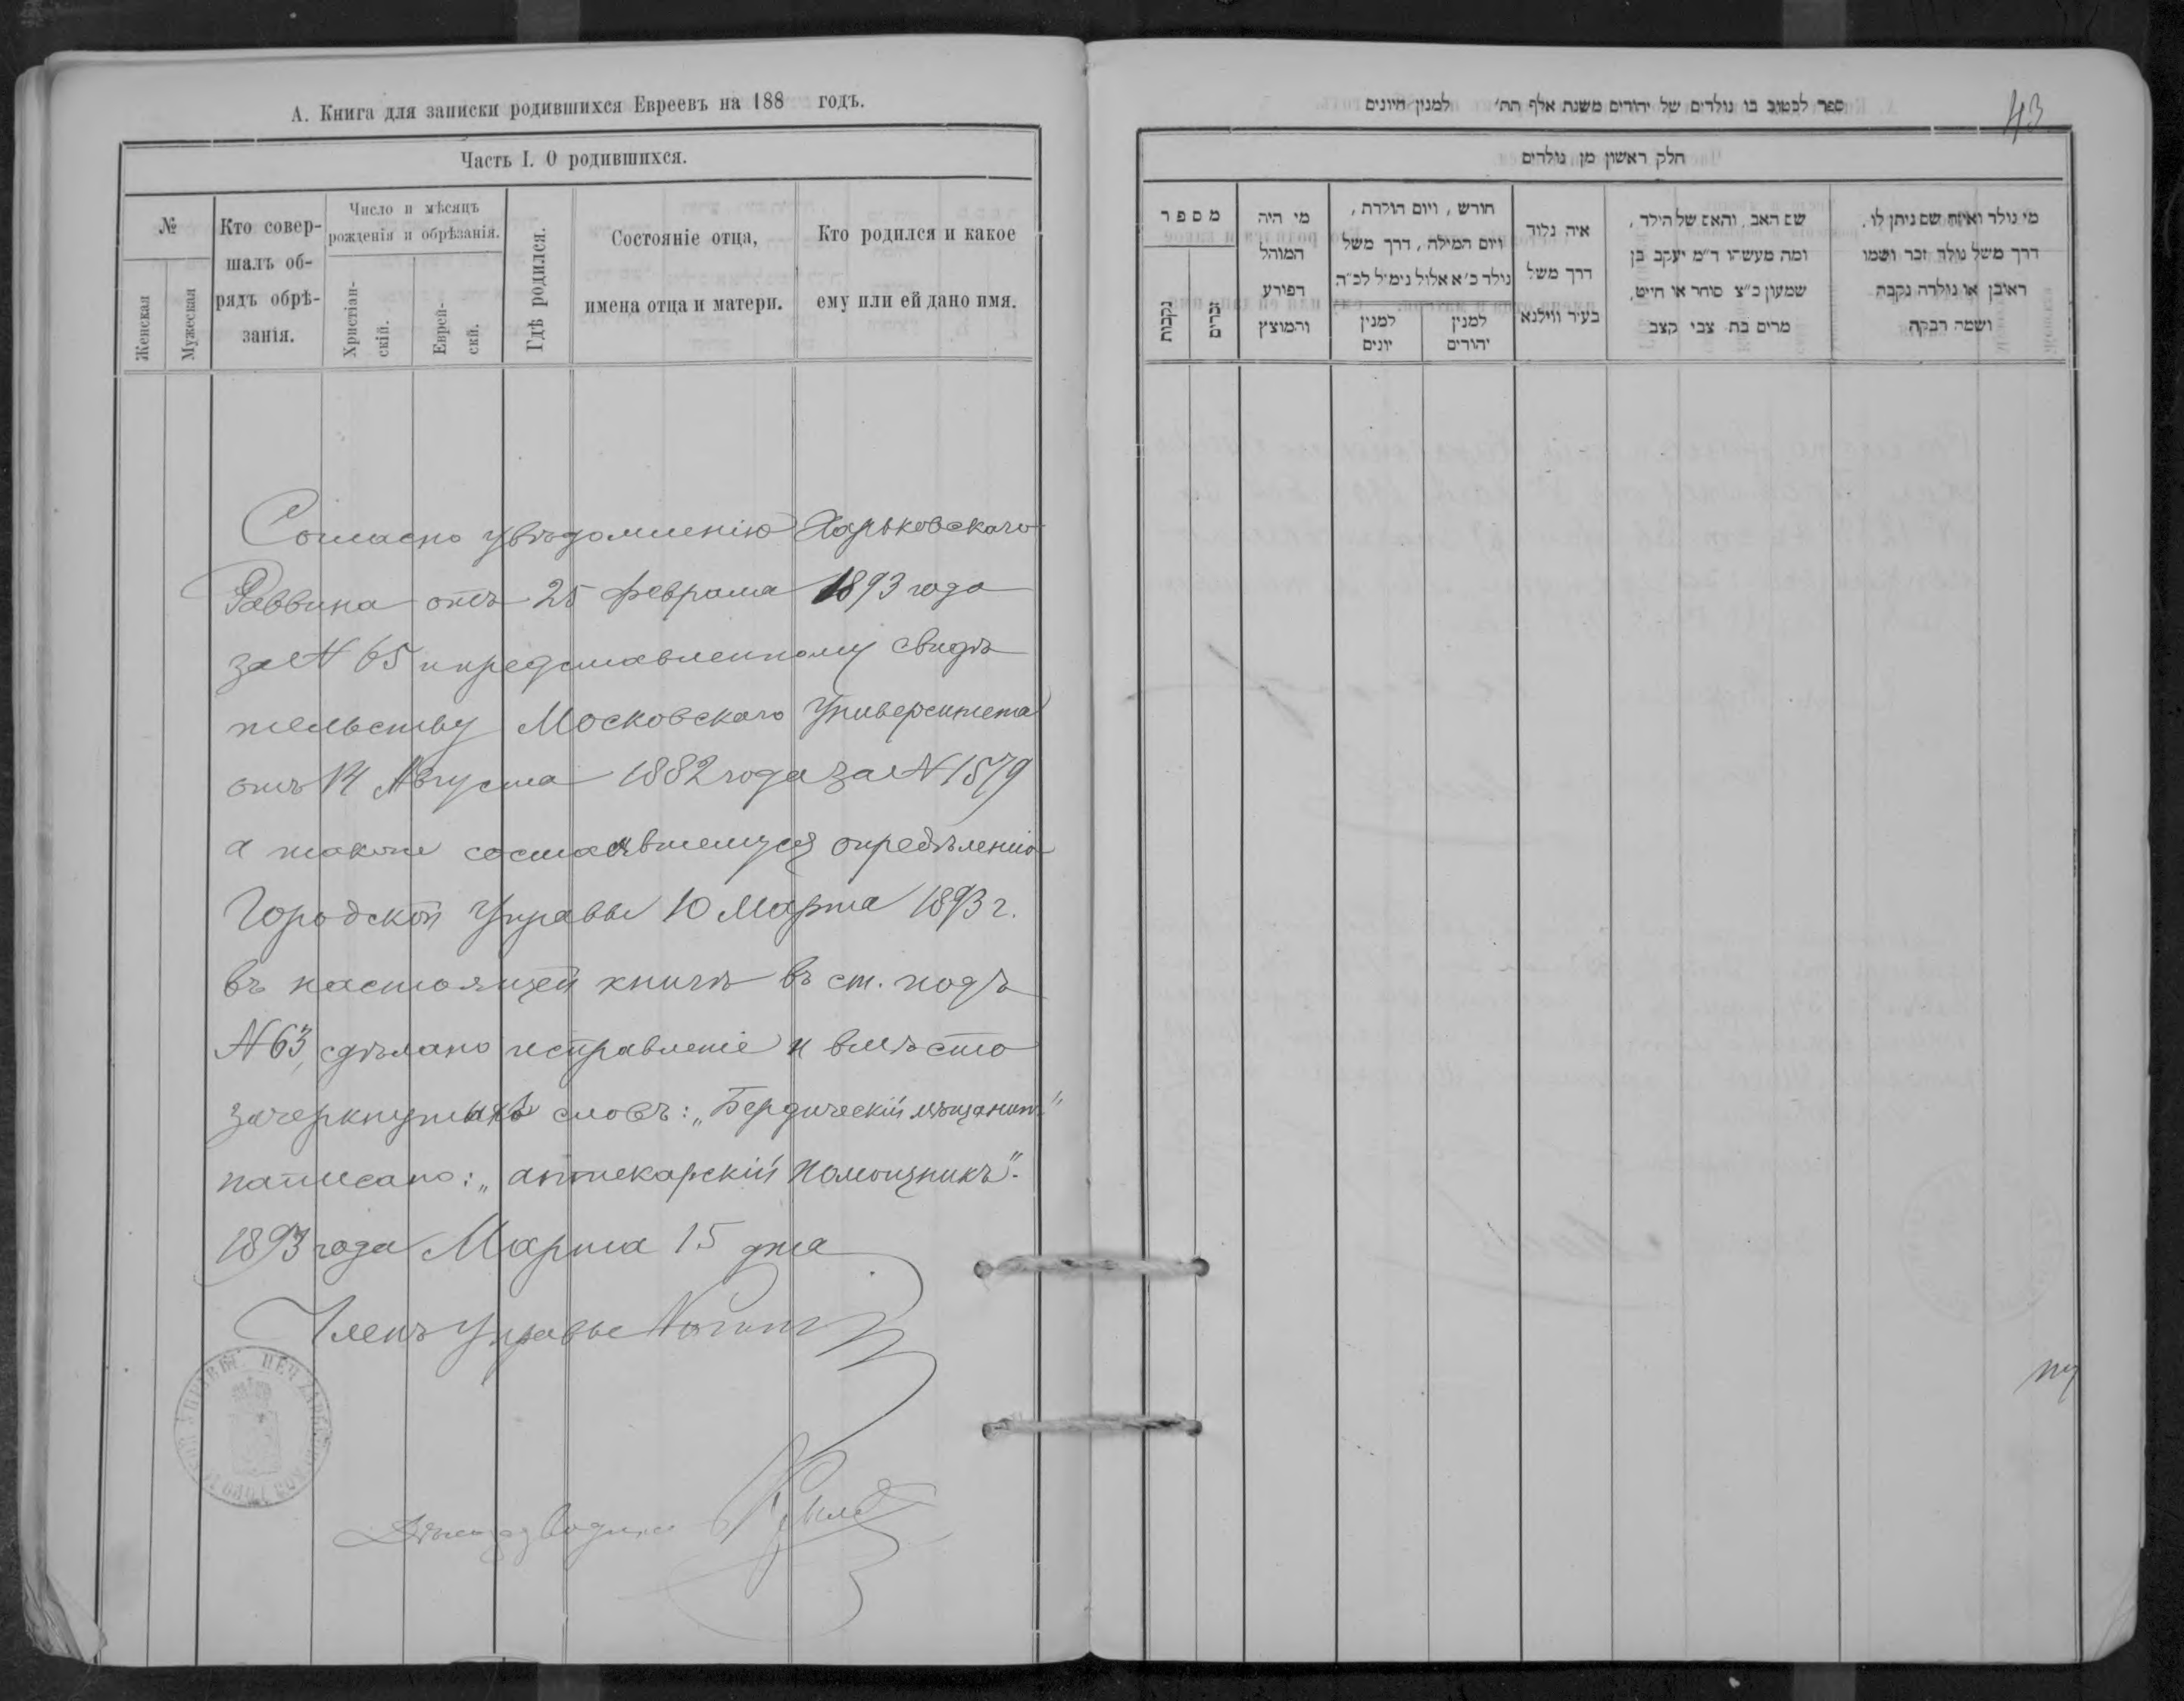 А. Книга для записки родившихся Евреевъ на 188 годъ.
Часть I. О родившихся.
№
Женская
Мужеская
Кто совер-
шалъ об-
рядъ обрѣ-
занія.
Число и мѣсяцъ
рожденія и обрѣзанія.
Христіан-
скій.
Еврей-
скій.
Гдѣ родился.
Состояніе отца,
имена отца и матери.
Кто родился и какое
ему или ей дано имя.
Согласно увѣдомленію Харьковскаго
Раввина отъ 25 февраля 1893 года
за N 65 и представленному свидѣ
тельству Московскаго Университета
отъ 14 Августа 1882 года за N 1579
а также состоявшемуся опредѣленію
Городской Управы 10 Марта 1893 г.
въ настоящей книгѣ въ ст. подъ
N 63, сдѣлано исправленіе и вмѣсто
зачеркнутыхъ словъ: „Бердическій мѣщанинъ"
написано: „аптекарскій помощникъ".
1893 года Марта 15 дня
Членъ Управы
43
ספר לכטוב בו נולדים של יהודים משנת אלף תת׳ למנין היונים
חלק ראשון מן נולדים
מספר
נקבות
זכרים
מי היה
המוהל
הפורע
והמוצץ
חורש, ויום הולדת,
ויום המילה, דרך משל
נולד כ׳א אלול נימ׳ל לכ״ה
למנין
יונים
למנין
יהודים
איה נלוד
דרך משל
בעיר ווילנא
שם האב, והאם של הילד,
ומה מעשהו ד״מ יעקב בן
שמעון כ״צ סוחר או חייט,
מרים בת צבי קצב
מי נולד ואיזה שם ניתן לו.
דרך משל נולד זכר ושמו
ראובן או נולדה נקבה
ושמה רבקה